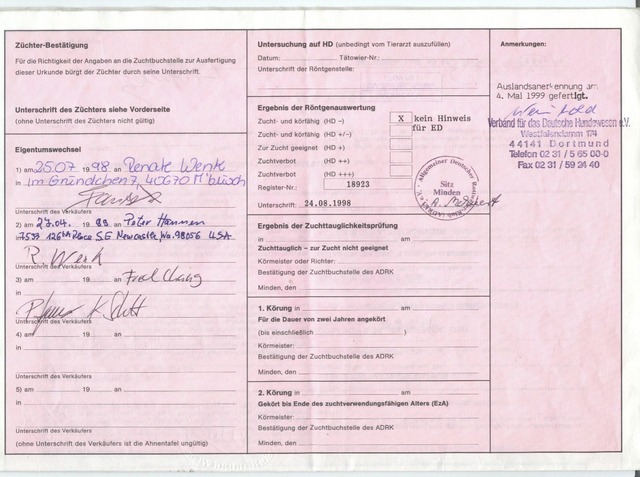 Züchter-Bestätigung
Für die Richtigkeit der Angaben an die Zuchtbuchstelle zur Ausfertigung
dieser Urkunde bürgt der Züchter durch seine Unterschrift.
Unterschrift des Züchters siehe Vorderseite
(ohne Unterschrift des Züchters nicht gültig)
Eigentumswechsel
1) am 25.07 1998 an Renate Werk
in Im Gründchen 7, 40670 M'busch
Unterschrift des Verkäufers
2) am 27.04. 1999 an Peter Hannen
7533 126th Place SE Newcastle Wa. 98056 USA
R. Werk
Unterschrift des Verkäufers
3) am 19 an Fred
in
Unterschrift des Verkäufers
4) am 19 an
in
Unterschrift des Verkäufers
5) am 19 an
in
Unterschrift des Verkäufers
(ohne Unterschrift des Verkäufers ist die Ahnentafel ungültig)
Untersuchung auf HD (unbedingt vom Tierarzt auszufüllen)
Datum: Tätowier-Nr.:
Unterschrift der Röntgenstelle:
Ergebnis der Röntgenauswertung
Zucht- und körfähig (HD –) X kein Hinweis
Zucht- und körfähig (HD +/–) für ED
Zur Zucht geeignet (HD +)
Zuchtverbot (HD ++)
Zuchtverbot (HD +++)
Register-Nr.: 18923
Unterschrift: 24.08.1998
Allgemeiner Deutscher Rottweiler-Klub (ADRK) e.V.
Sitz
Minden
Ergebnis der Zuchttauglichkeitsprüfung
in am
Zuchttauglich – zur Zucht nicht geeignet
Körmeister oder Richter:
Bestätigung der Zuchtbuchstelle des ADRK
Minden, den
1. Körung in am
Für die Dauer von zwei Jahren angekört
(bis einschließlich )
Körmeister:
Bestätigung der Zuchtbuchstelle des ADRK
Minden, den
2. Körung in am
Gekört bis Ende des zuchtverwendungsfähigen Alters (EzA)
Körmeister:
Bestätigung der Zuchtbuchstelle des ADRK
Minden, den
Anmerkungen:
Auslandsanerkennung am
4. Mai 1999 gefertigt.
Verband für das Deutsche Hundewesen e.V.
Westfalendamm 174
44141 Dortmund
Telefon 02 31 / 5 65 00-0
Fax 02 31 / 59 24 40